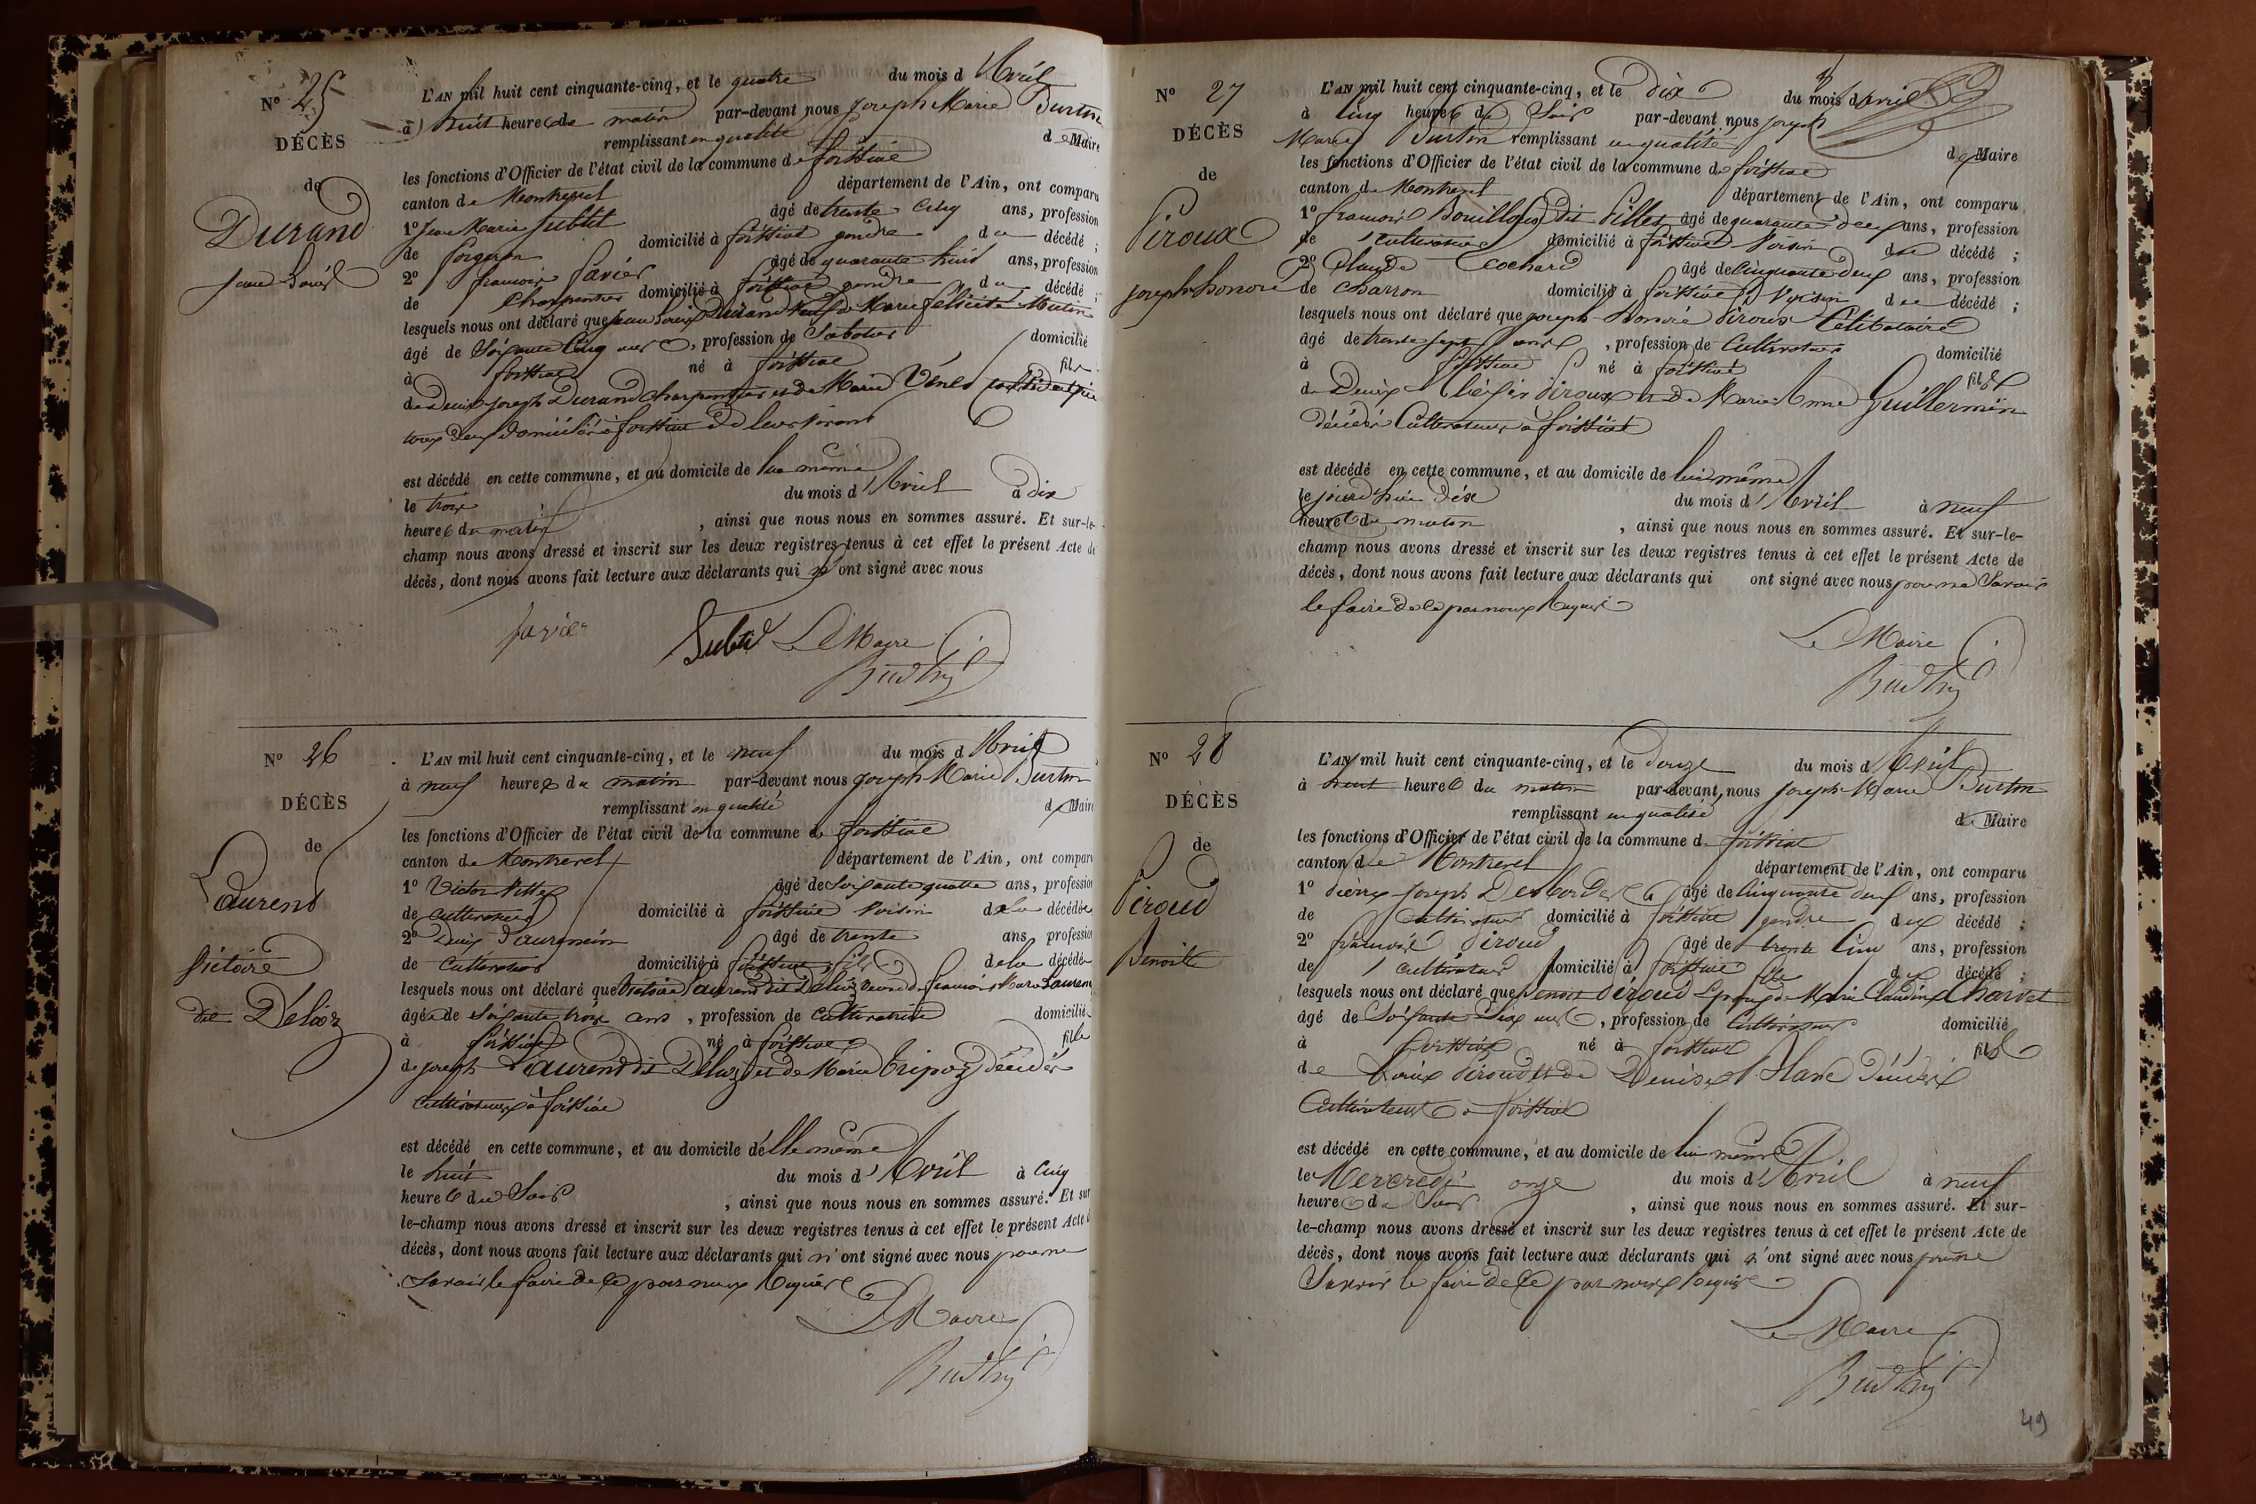 N° 25
DÉCÈS
de
Durand
Jean Louis
L'AN mil huit cent cinquante-cinq, et le quatre du mois d'Avril
à huit heures du matin par-devant nous Joseph Marie Burtin
remplissant en qualité de Maire
les fonctions d'Officier de l'état civil de la commune de foissiat
canton de Montrevel département de l'Ain, ont comparu
1° Jean Marie Subtil âgé de trente cinq ans, profession
de forgeron domicilié à foissiat gendre du décédé ;
2° françois favier âgé de quarante huit ans, profession
de Charpentier domicilié à foissiat gendre du décédé ;
lesquels nous ont déclaré que Jean Louis Durand Veuf de Marie felicité
âgé de Soixante Cinq ans, profession de Sabotier domicilié
à foissiat né à foissiat fils
de Denis joseph Durand charpentier et de Marie
tous deux domiciliés à foissiat de leur vivant
est décédé en cette commune, et au domicile de lui même
le trois du mois d'Avril à dix
heures du matin, ainsi que nous nous en sommes assuré. Et sur-le-
champ nous avons dressé et inscrit sur les deux registres tenus à cet effet le présent Acte de
décès, dont nous avons fait lecture aux déclarants qui ont signé avec nous
favier Subtil Le Maire
Burtin
N° 26
DÉCÈS
de
Laurend
Victoire
dit Déloz
L'AN mil huit cent cinquante-cinq, et le neuf du mois d'Avril
à neuf heures du matin par-devant nous Joseph Marie Burtin
remplissant en qualité de Maire
les fonctions d'Officier de l'état civil de la commune de foissiat
canton de Montrevel département de l'Ain, ont comparu
1° Victor Pittet âgé de Soixante quatre ans, profession
de cultivateur domicilié à foissiat Voisin de la décédée
2° Denis âgé de trente ans, profession
de Cultivateur domicilié à foissiat de la décédée
lesquels nous ont déclaré que Victoire Laurend dit Déloz Veuve de françois Marie Laurend
âgée de Soixante trois ans, profession de Cultivatrice domiciliée
à foissiat né à foissiat fille
de joseph Laurend dit Déloz et de Marie Tripoz décédés
Cultivateurs à foissiat
est décédé en cette commune, et au domicile d'elle même
le huit du mois d'Avril à Cinq
heures du Soir, ainsi que nous nous en sommes assuré. Et sur
le-champ nous avons dressé et inscrit sur les deux registres tenus à cet effet le présent Acte
décès, dont nous avons fait lecture aux déclarants qui n'ont signé avec nous pour ne
Savoir le faire de ce par nous Requis
Le Maire
Burtin
N° 27
DÉCÈS
de
Piroux
joseph honoré
L'AN mil huit cent cinquante-cinq, et le dix du mois d'Avril
à cinq heures du Soir par-devant nous joseph
Marie Burtin remplissant en qualité de Maire
les fonctions d'Officier de l'état civil de la commune de foissiat
canton de Montrevel département de l'Ain, ont comparu
1° françois Bouilloux dit Pillet âgé de quarante deux ans, profession
de Cultivateur domicilié à foissiat Voisin du décédé ;
2° Claude Cochard âgé de Cinquante deux ans, profession
de Charron domicilié à foissiat Voisin du décédé ;
lesquels nous ont déclaré que joseph honoré Piroux Célibataire
âgé de trente sept ans, profession de Cultivateur domicilié
à foissiat né à foissiat fils
de Denis Piroux et de Marie Anne Guillermin
décédés Cultivateurs à foissiat
est décédé en cette commune, et au domicile de lui même
le jourd'hui dix du mois d'Avril à neuf
heures du matin, ainsi que nous nous en sommes assuré. Et sur-le-
champ nous avons dressé et inscrit sur les deux registres tenus à cet effet le présent Acte de
décès, dont nous avons fait lecture aux déclarants qui ont signé avec nous pour ne Savoir
le faire de ce par nous Requis
Le Maire
Burtin
N° 28
DÉCÈS
de
Piroud
Benoit
L'AN mil huit cent cinquante-cinq, et le douze du mois d'Avril
à heures du matin par-devant nous joseph Marie Burtin
remplissant en qualité de Maire
les fonctions d'Officier de l'état civil de la commune de foissiat
canton de Montrevel département de l'Ain, ont comparu
1° Pierre joseph Desbordes âgé de Cinquante deux ans, profession
de Cultivateur domicilié à foissiat gendre du décédé ;
2° françois Piroud âgé de trente Cinq ans, profession
de Cultivateur domicilié à foissiat fils du décédé ;
lesquels nous ont déclaré que Benoit Piroud Epoux de Marie Claudine Charvet
âgé de Soixante Six ans, profession de Cultivateur domicilié
à foissiat né à foissiat fils
de Louis Piroud et de Denise Blanc décédés
Cultivateurs à foissiat
est décédé en cette commune, et au domicile de lui même
le Mercredi onze du mois d'Avril à neuf
heures du Soir, ainsi que nous nous en sommes assuré. Et sur-
le-champ nous avons dressé et inscrit sur les deux registres tenus à cet effet le présent Acte de
décès, dont nous avons fait lecture aux déclarants qui n'ont signé avec nous pour ne
Savoir le faire de ce par nous Requis
Le Maire
Burtin
49